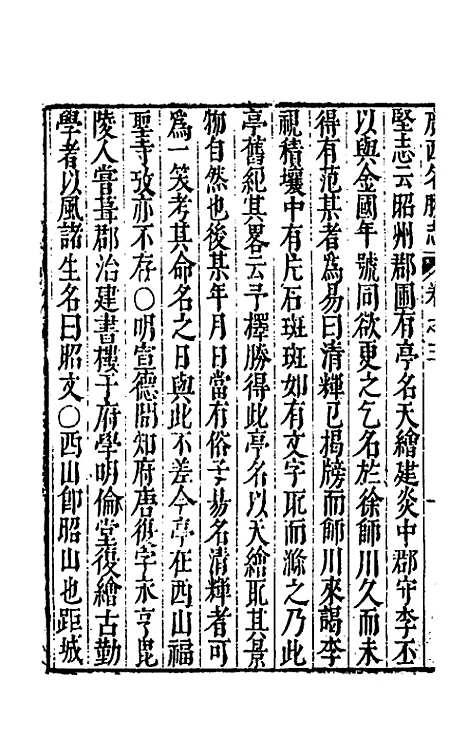 廣西名勝志 卷之三
堅志云昭州郡圃有亭名天繪建炎中郡守李丕
以與金國年號同欲更之乞名於徐師川久而未
得有范某者爲易曰清輝已揭牓而師川來謁李
視積壤中有片石斑斑如有文字取而滌之乃此
亭舊紀其畧云予擇勝得此亭名以天繪取其景
物自然也後某年月日當有俗子易名清輝者可
爲一笑考其命名之日與此不差今亭在西山福
聖寺攷亦不存○明宣德間知府唐復字永亨毘
陵人嘗葺郡治建書樓于府學明倫堂復繪古勤
學者以風諸生名曰昭文○西山卽昭山也距城